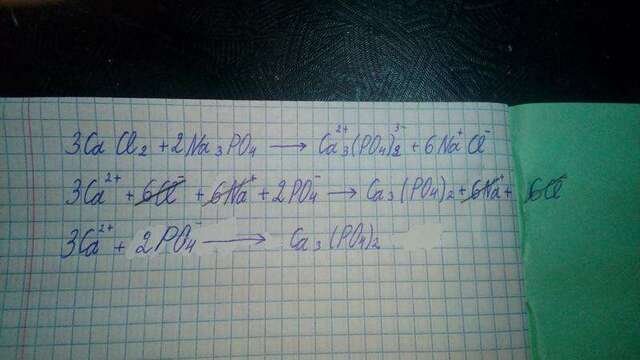 3CaCl₂ + 2Na₃PO₄ → Ca₃²⁺(PO₄)₂³⁻ + 6Na⁺Cl⁻
3Ca²⁺ + 6Cl⁻ + 6Na⁺ + 2PO₄⁻ → Ca₃(PO₄)₂ + 6Na⁺ + 6Cl⁻
3Ca²⁺ + 2PO₄⁻ → Ca₃(PO₄)₂